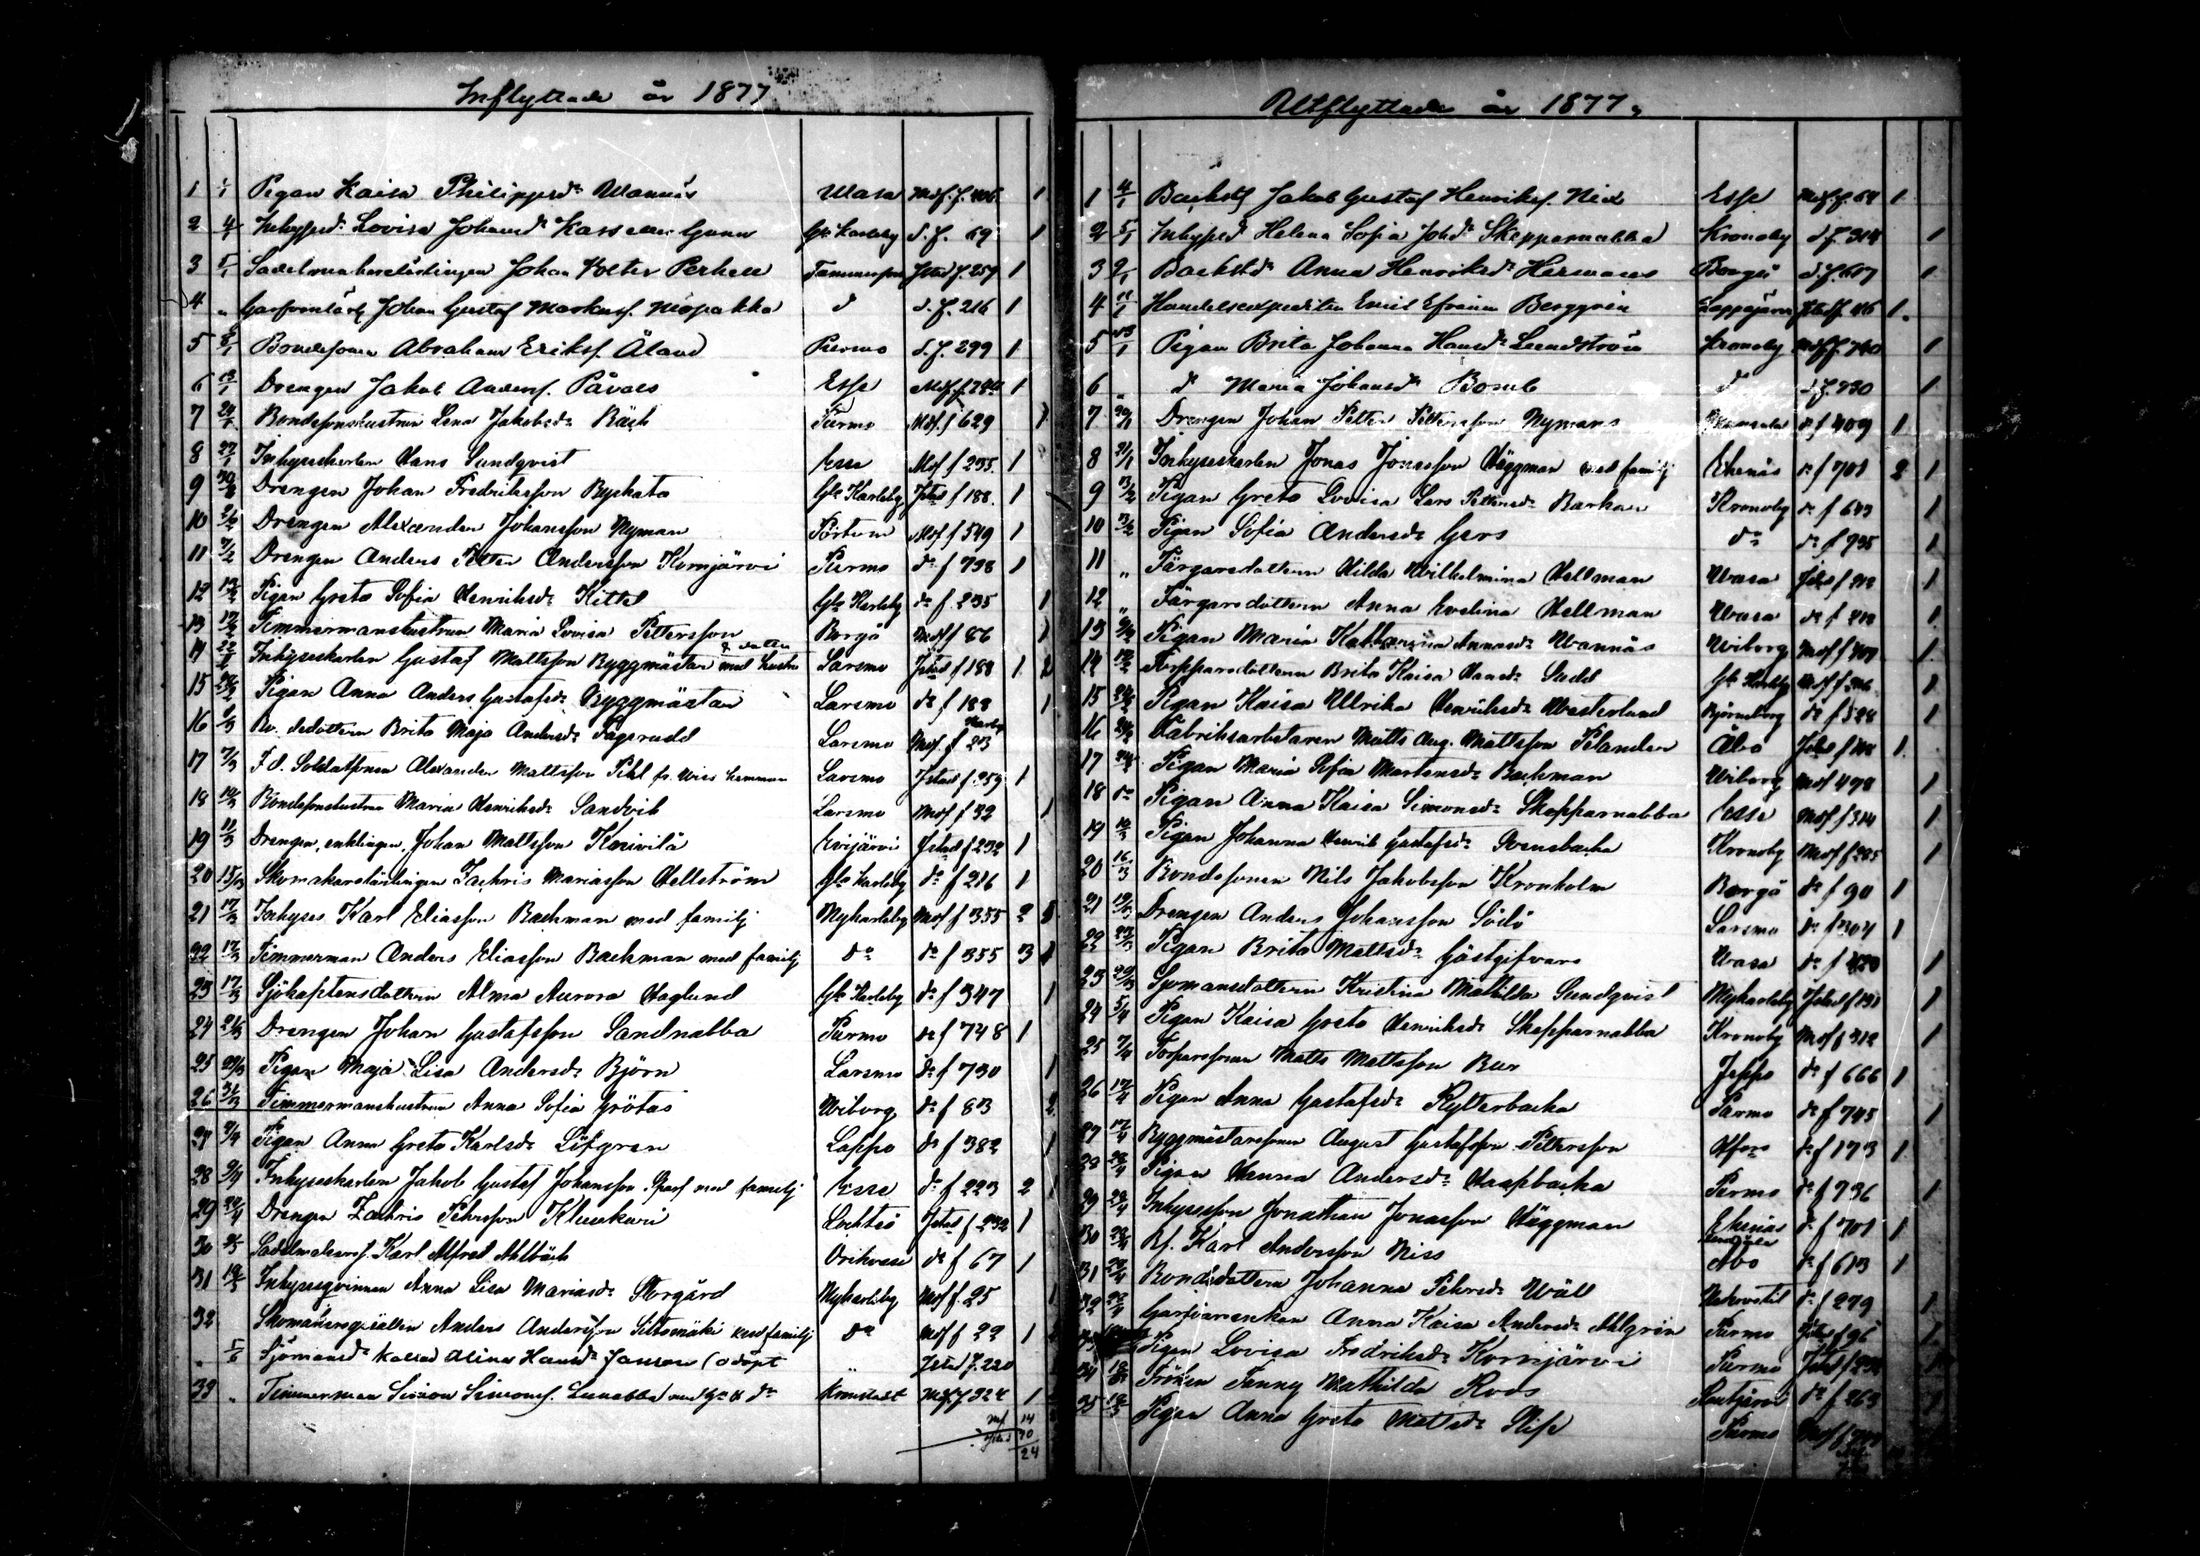 Inflyttade år 1877
1 1/1 Pigan Kaisa Philippsdr Wannäs Wasa Msf. f. 406 1
2 4/1 Inhysesdr Lovisa Johansdr Gunn Gl. Karleby d. f. 69 1
3 5/1 Sadelmakarelärlingen Johan Perhell Tammerfors Jstad f. 259 1
4 " Johan Gustaf Markusf. Niopakka d d. f. 216 1
5 8/1 Bondesonen Abraham Eriksf. Åland Purmo d. f. 299 1
6 13/1 Drengen Jakob Andersf. Påvals Esse Msf. f. 1
7 24/1 Bondesonshustrun Lena Jakobsdr Bäck Purmo Msf f 629 1
8 27/1 Inhyseskarlen Hans Sundqvist Esse Msf f 235 1
9 Drengen Johan Fredriksson Byskata Gla Karleby Jstad f 188 1
10 2/2 Drengen Alexander Johansson Nyman Pörtom Msf f 549 1
11 7/2 Drengen Anders Petter Andersson Kornjärvi Purmo do f 798 1
12 Pigan Greta Sofia Henriksdr Kittel Gla Karleby do f 235 1
13 17/2 Timmermanshustrun Maria Lovisa Pettersson Borgå Msf f 86 1
& dotter
14 Inhyseskarlen Gustaf Mattsson Byggmästar med hustru Larsmo Jstad f 188 1 2
15 Pigan Anna Anders Gustafsdr Byggmästar Larsmo do f 188 1
16 1/3 Bo. dedottern Brita Maja Andersdr Fagerudd Larsmo Msf. f 23
17 7/3 F d. Soldatsonen Alexander Mattsson Pihl Larsmo Jstad f. 259 1
18 10/3 Bondesonshustrun Maria Henriksdr Sandvik Larsmo Msf f 32 1
19 11/3 Drengen, enklingen, Johan Mattsson Evijärvi Jstad f 232 1
20 15/3 Skomakarelärlingen Zachris Mariasson Hellström Gla Karleby do f 216 1
21 17/3 Inhyses Karl Eliasson Backman med familj Nykarleby Msf f 355 2 3
22 17/3 Timmerman Anders Eliasson Backman med familj do do f 355 3
23 17/3 Sjökaptensdottern Alma Aurora Haglund Gla Karleby do f 347 1
24 21/3 Drengen Johan Gustafsson Sandnabba Purmo do f 748 1
25 29/3 Pigan Maja Lisa Andersdr Björn Larsmo do f 730 1
26 31/3 Timmermanshustrun Anna Sofia Grötas Wiborg do f 83 2
27 Pigan Anna Greta Karlsdr Löfgren Lappo do f 382 1
28 9/4 Inhyseskarlen Jakob Gustaf Johansson Sparf med familj Esse do f 223 2
29 Drengen Zachris Pehrsson Kluukari Lochteå Jstad f 232 1
30 Sadelmakaref. Karl Alfred Ahlbäck Orihvesi do f 67 1
31 Inhysesqvinnan Anna Lisa Mariasdr Storgård Nykarleby Msf f. 25 1
32 Skomakaregesällen Anders Andersson Siltamäki med familj do Msf f 22 1
" 5/6 Sjömansdr Kallad Alina Hansdr Janson (adopt " Jstad f. 220
33 " Timmerman Simon Simonsf. Lunabba med Kronstadt Msf. f 324 1
Msf 14
Jstad 10
24
Utflyttade år 1877
1 4/1 Backstf Jakob Gustaf Henriksf. Esse Msf. f 64 1
2 5/1 Inhysesdr Helena Sofia Johdr Skepparnabba Kronoby d. f. 314 1
3 9/1 Backstdr Anna Henriksdr Hermans Borgå d. f. 607 1
4 11/1 Handelsexpediten Emil Efraim Berggren Lappajärvi Jstad f. 1
5 Pigan Brita Johanna Hansdr Lundström Kronoby Msf f. 740 1
6 " d Maria Johansdr Bomb d d. f. 230 1
7 Drengen Johan Petter Pettersson Nymans do f 409 1
8 Inhyseskarlen Jonas Jonasson Häggman med familj Ekenäs do f 701 2 1
9 13/2 Pigan Greta Lovisa Lars Pettersdr Barkar Kronoby do f 643 1
10 13/2 Pigan Sofia Andersdr Gers do do f 735 1
11 " Färgaredottern Hilda Wilhelmina Hellman Wasa Jstad f 212 1
12 " Färgaredottern Anna Evelina Hellman Wasa do f 212 1
13 Pigan Maria Katharina Annasdr Wannäs Wiborg Msf f 1
14 Torpparedottern Brita Kaisa Hansdr Sudd Gla Karleby Msf f 1
15 Pigan Kaisa Ulrika Henriksdr Westerlund Björneborg do f 528 1
16 Fabriksarbetaren Matts Aug. Mattsson Pelander Åbo Jstad f 1
17 Pigan Maria Sofia Martensdr Backman Wiborg Msf 498 1
18 do Pigan Anna Kaisa Simonsdr Skepparnabba Esse Msf f 314 1
19 Pigan Johanna Henrik Gustafsdr Svensbacka Kronoby Msf f 285 1
20 16/3 Bondesonen Nils Jakobsson Kronholm Borgå do f 90 1
21 Drengen Anders Johansson Södö Larsmo do f 304 1
22 Pigan Brita Mattsdr Gästgifvars Wasa do f 1
23 Sjömansdottern Kristina Mathilda Sundqvist Nykarleby Jstad f 191 1
24 5/4 Pigan Kaisa Greta Henriksdr Skepparnabba Kronoby Msf f 312 1
25 7/4 Torparesonen Matts Mattsson Bur Jeppo do f 666 1
26 17/4 Pigan Anna Gustafsdr Rytterbacka Purmo do f 745 1
27 17/4 Byggmästarsonen August Gustafsson Pettersson Hfors do f 173 1
28 Pigan Hanna Andersdr Haapbacka Purmo do f 736 1
29 Inhysesson Jonathan Jonasson Häggman Ekenäs do f 701 1
30 Bf. Karl Andersson Niss Åbo do f 613 1
31 Bondedottern Johanna Pehrsdr Wäll Nedervetil do f 279 1
32 Garfvareenkan Anna Kaisa Andersdr Ahlgrén Purmo Jstad f 96 1
33 Pigan Lovisa Fredriksdr Kornjärvi Purmo Jstad f
34 Fröken Fanny Mathilda Roos do f 263 1
35 Pigan Anna Greta Mattsdr Purmo Msf f